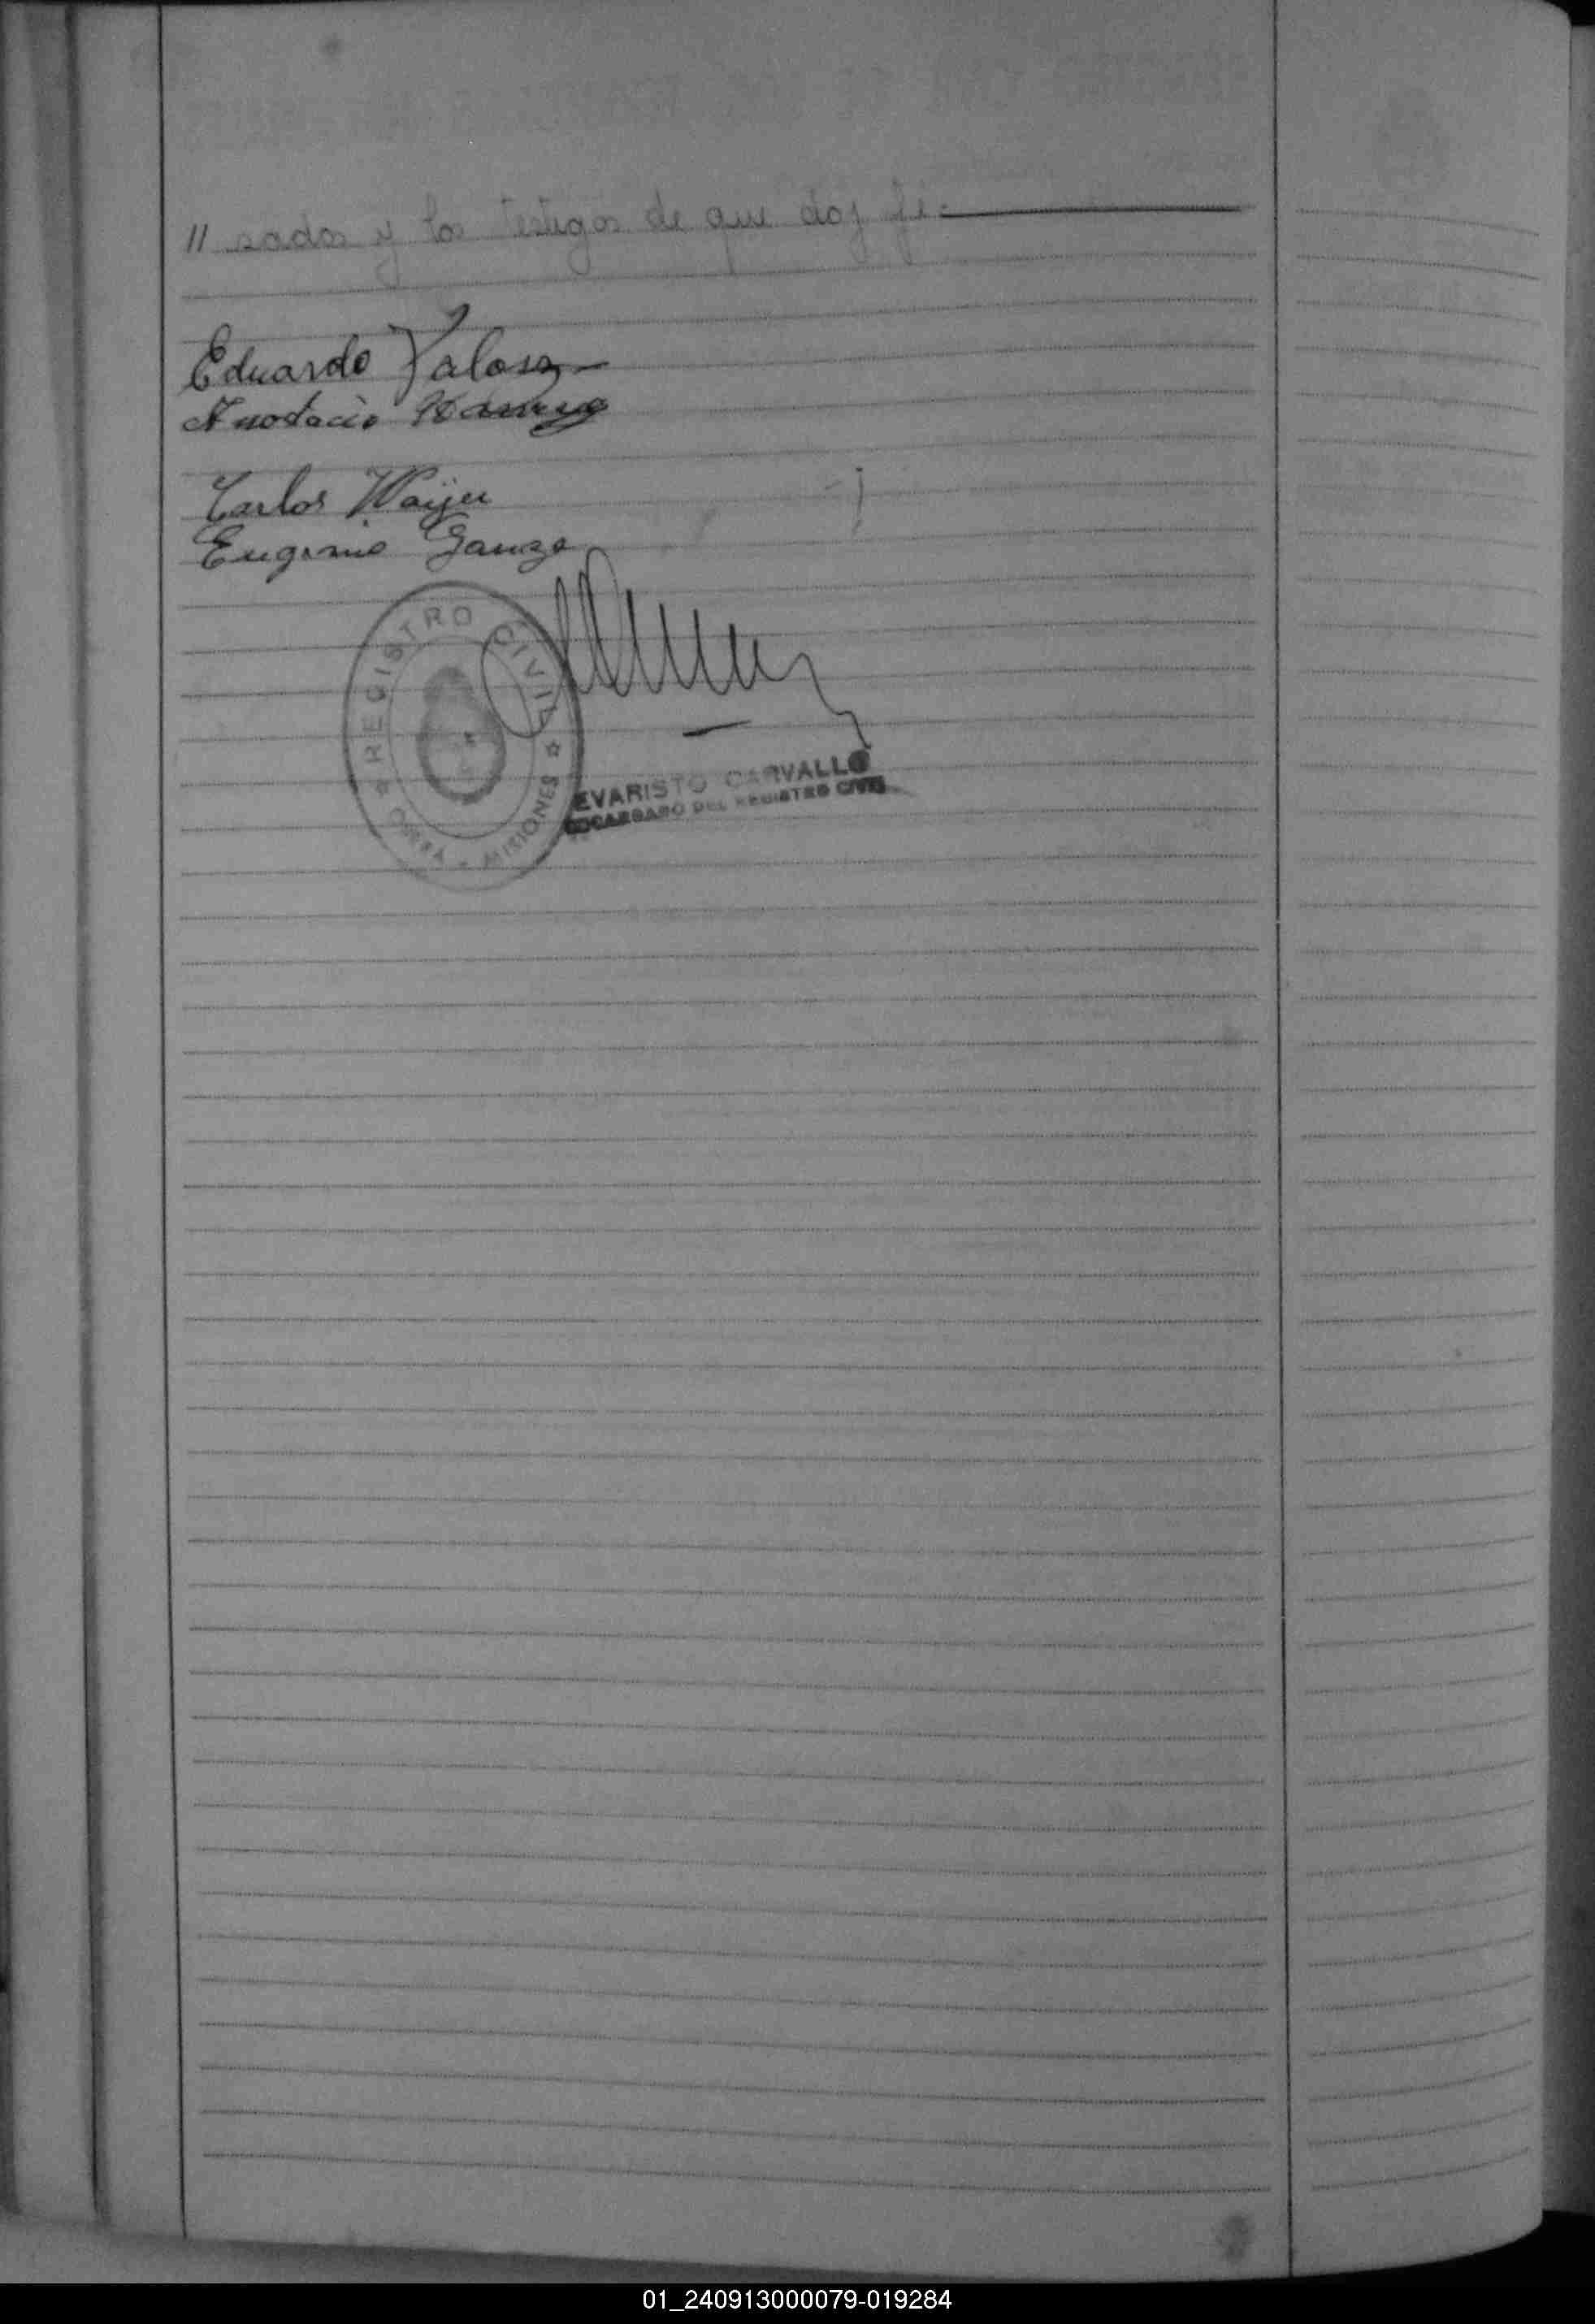 // sados y los testigos de que doy fé.
Eduardo
Carlos
Eugenio
REGISTRO CIVIL
OBERÁ - MISIONES
EVARISTO CARVALLO
ENCARGADO DEL REGISTRO CIVIL
01_240913000079-019284